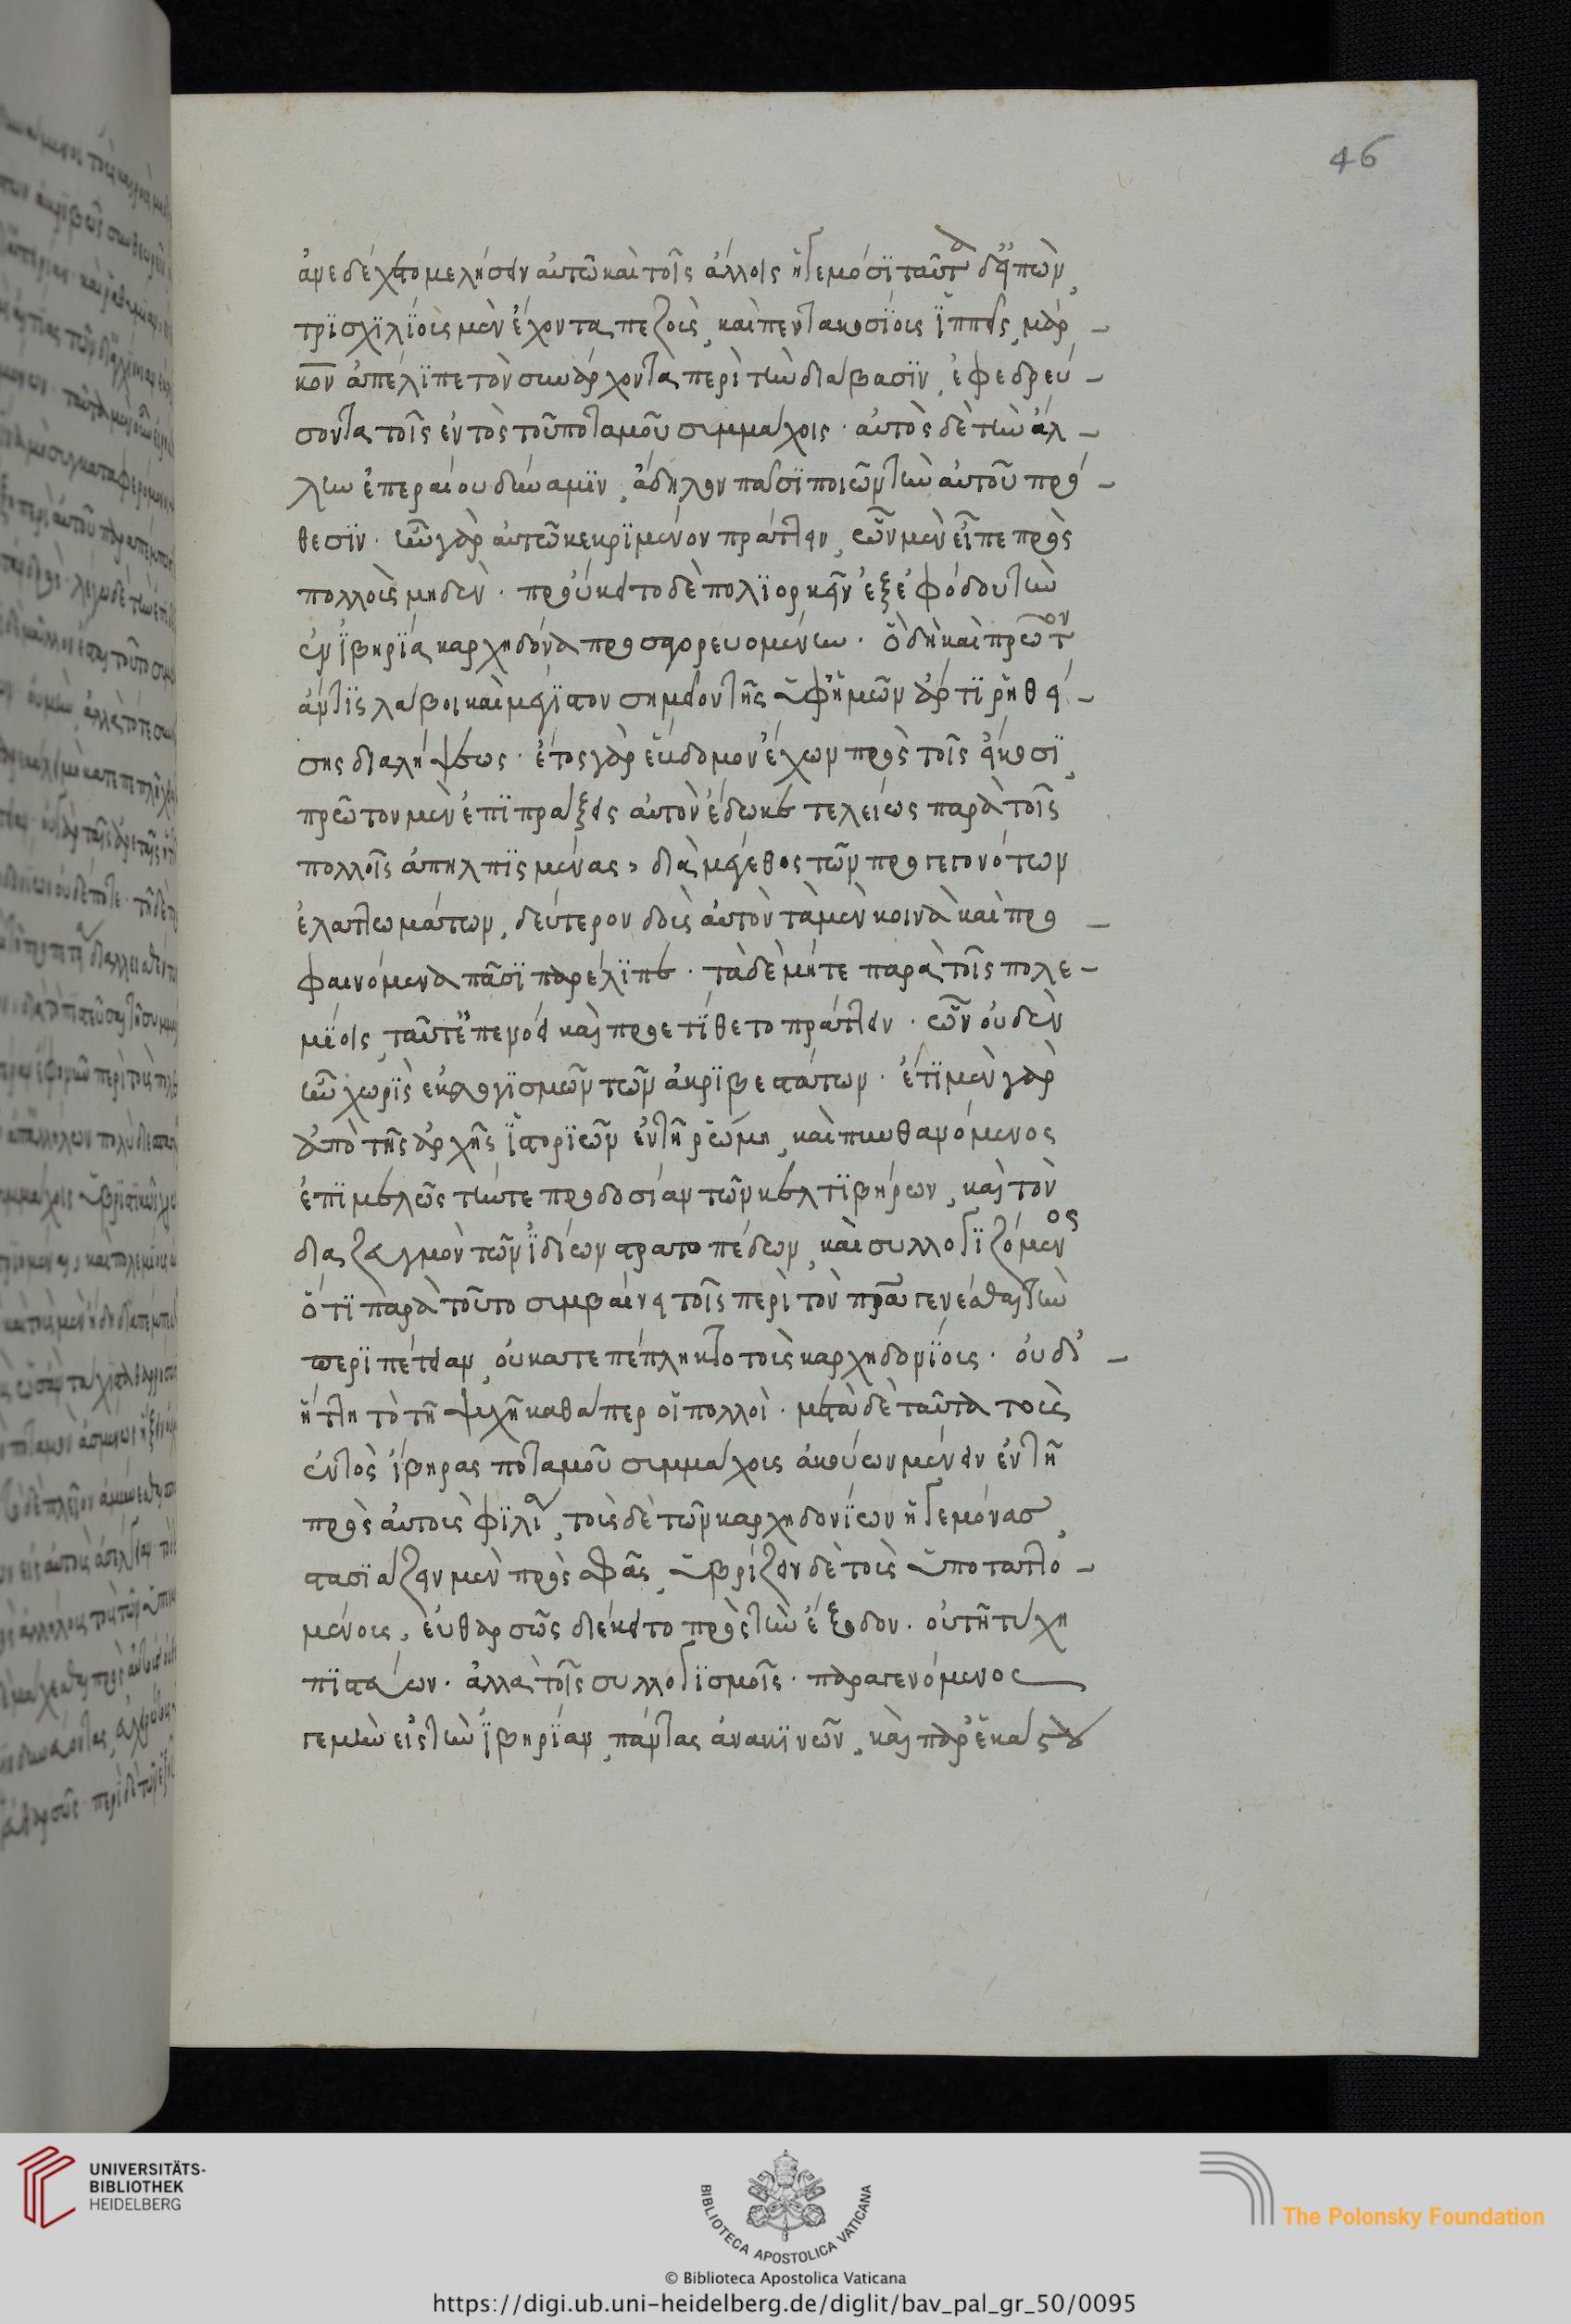 46
ἀνεδέχετο μελήσειν αὐτῶ καὶ τοῖς ἄλλοις ἡγεμόσι ταῦτα δ' εἰπὼν,
τρισχιλίους μὲν ἔχοντα πεζοὺς, καὶ πεντακοσίους ἱππεῖς, μάρ-
κον ἀπέλιπε τὸν συνάρχοντα περὶ τὴν διάβασιν, ἐφεδρεύ-
σοντα τοῖς ἐντὸς τοῦ ποταμοῦ συμμάχοις. αὐτὸς δὲ τὴν ἄλ-
λην ἐπεραίου δύναμιν, ἄδηλον πᾶσι ποιῶν τὴν αὐτοῦ πρό-
θεσιν. ἦν γὰρ αὐτῶ κεκριμένον πράττειν, ὧν μὲν εἶπε πρὸς
πολλοὺς μηδέν. προύκειτο δὲ πολιορκεῖν ἐξ ἐφόδου τὴν
ἐν ἰβηρία καρχηδόνα προσαγορευομένην. ὃ δὴ καὶ πρῶτον
ἄν τις λάβοι καὶ μέγιστον σημεῖον τῆς ὑφ' ἡμῶν ἄρτι ῥηθεί-
σης διαλήψεως. ἔτος γὰρ ἕβδομον ἔχων πρὸς τοῖς εἴκοσι,
πρῶτον μὲν ἐπὶ πράξεις αὐτὸν ἔδωκε τελείως παρὰ τοῖς
πολλοῖς ἀπηλπισμένας, διὰ μέγεθος τῶν προγεγονότων
ἐλαττωμάτων, δεύτερον δοὺς αὐτὸν τὰ μὲν κοινὰ καὶ προ-
φαινόμενα πᾶσι παρέλιπε. τὰ δὲ μήτε παρὰ τοῖς πολε-
μίοις, ταῦτ' ἐπενόει καὶ προετίθετο πράττειν. ὧν οὐδὲν
ἦν χωρὶς ἐκλογισμῶν τῶν ἀκριβεστάτων. ἔτι μὲν γὰρ
ἀπὸ τῆς ἀρχῆς ἱστοριῶν ἐν τῆ ῥώμη, καὶ πυνθανόμενος
ἐπιμελῶς τήν τε προδοσίαν τῶν κελτιβήρων, καὶ τὸν
διαζευγμὸν τῶν ἰδίων στρατοπέδων, καὶ συλλογιζόμενος
ὅτι παρὰ τοῦτο συμβαίνει τοῖς περὶ τὸν πατέρα γενέσθαι τὴν
περιπέτειαν, οὐ κατεπέπληκτο τοὺς καρχηδονίους. οὐδ' -
ἥττητο τῆ ψυχῆ καθάπερ οἱ πολλοί. μετὰ δὲ ταῦτα τοὺς
ἐντὸς ἴβηρας ποταμοῦ συμμάχους ἀκούων μένειν ἐν τῆ
πρὸς αὐτοὺς φιλία, τοὺς δὲ τῶν καρχηδονίων ἡγεμόνας,
στασιάζειν μὲν πρὸς σφᾶς, ὑβρίζειν δὲ τοὺς ὑποταττο-
μένους, εὐθαρσῶς διέκειτο πρὸς τὴν ἔξοδον. οὐ τῆ τύχη
πιστεύων. ἀλλὰ τοῖς συλλογισμοῖς. παραγενόμενος
γε μὴν εἰς τὴν ἰβηρίαν, πάντας ἀνακινῶν, καὶ παρ' ἑκάστου
UNIVERSITÄTS-
BIBLIOTHEK
HEIDELBERG
BIBLIOTECA APOSTOLICA VATICANA
The Polonsky Foundation
© Biblioteca Apostolica Vaticana
https://digi.ub.uni-heidelberg.de/diglit/bav_pal_gr_50/0095